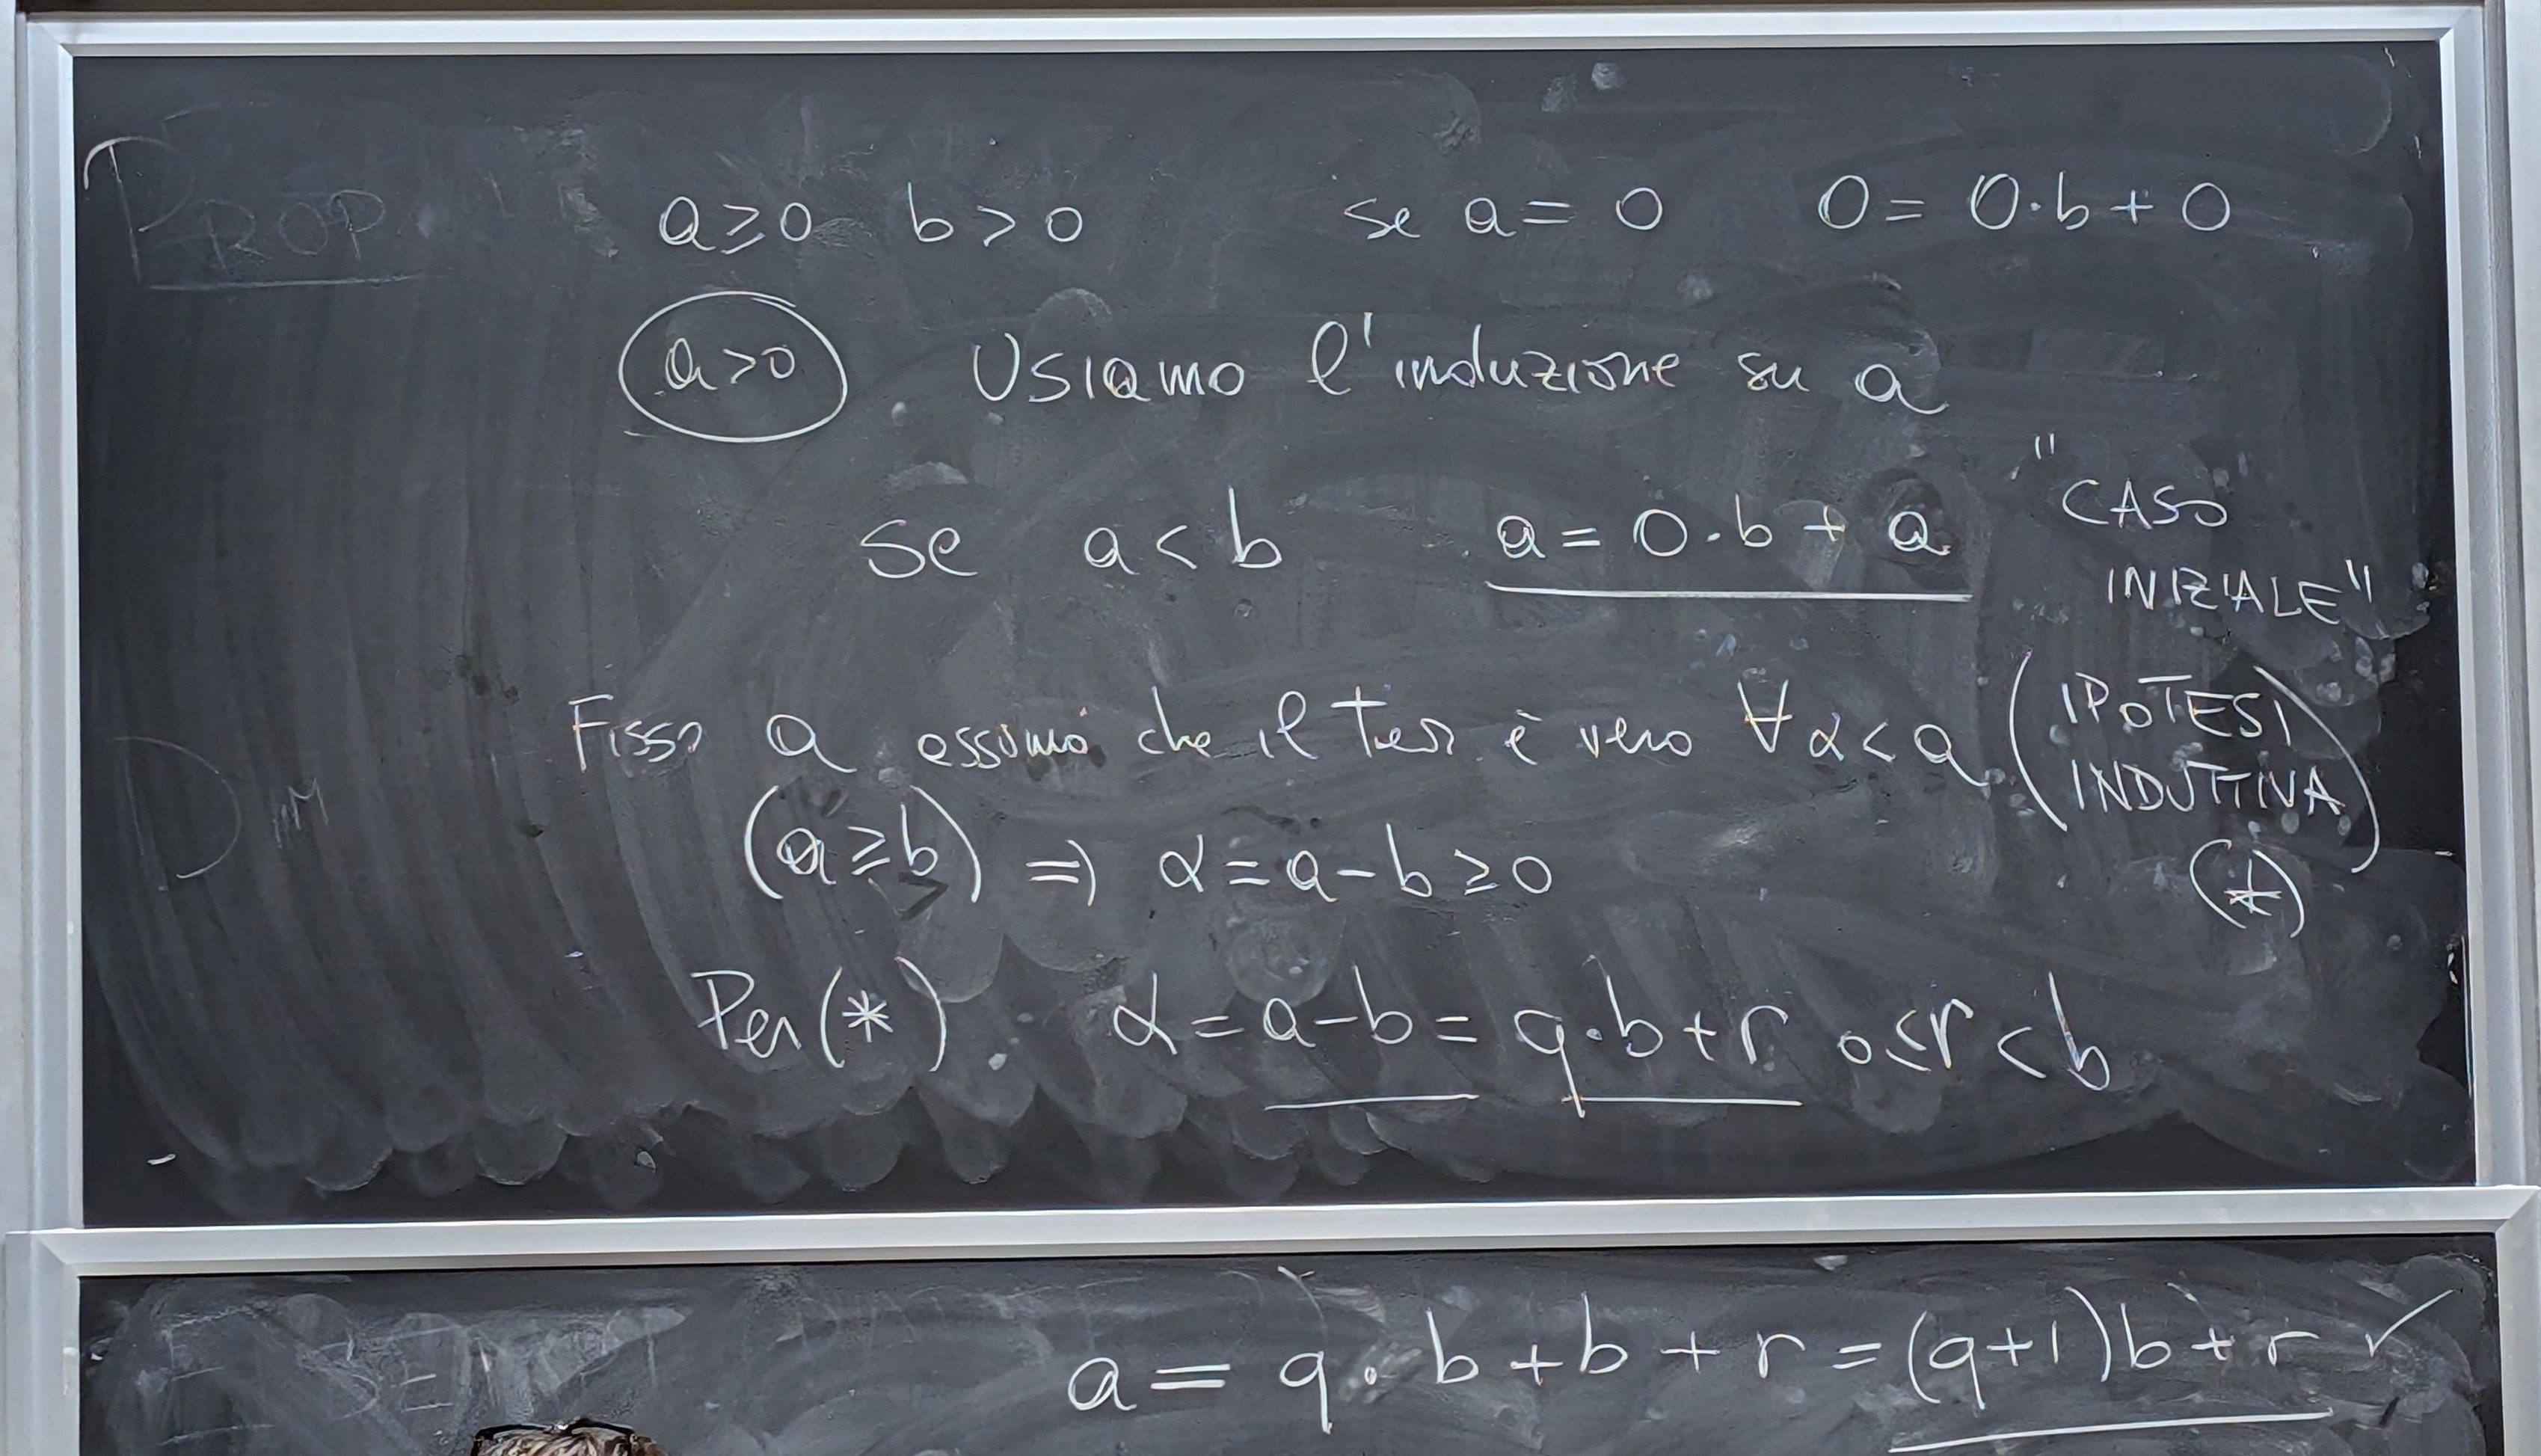 PROP
a ≥ 0 b > 0 se a = 0 0 = 0·b + 0
a > 0 Usiamo l'induzione su a
se a < b a = 0·b + a "CASO
INIZIALE"
Fisso a assumo che il teor. è vero ∀ α < a (IPOTESI
INDUTTIVA)
DIM
(a ≥ b) ⇒ α = a - b ≥ 0 (*)
Per (*) α = a - b = q·b + r 0 ≤ r < b
a = q·b + b + r = (q+1)b + r ✓